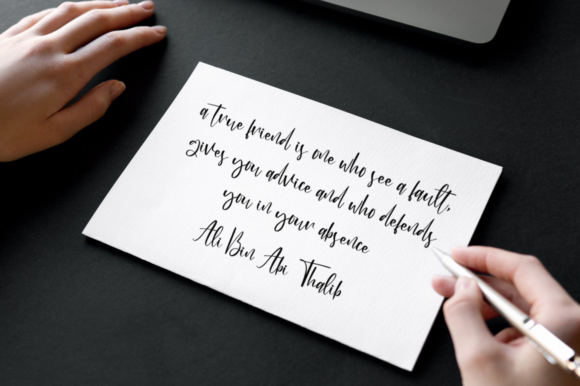 a true friend is one who see a fault,
gives you advice and who defends
you in your absence
Ali Bin Abi Thalib